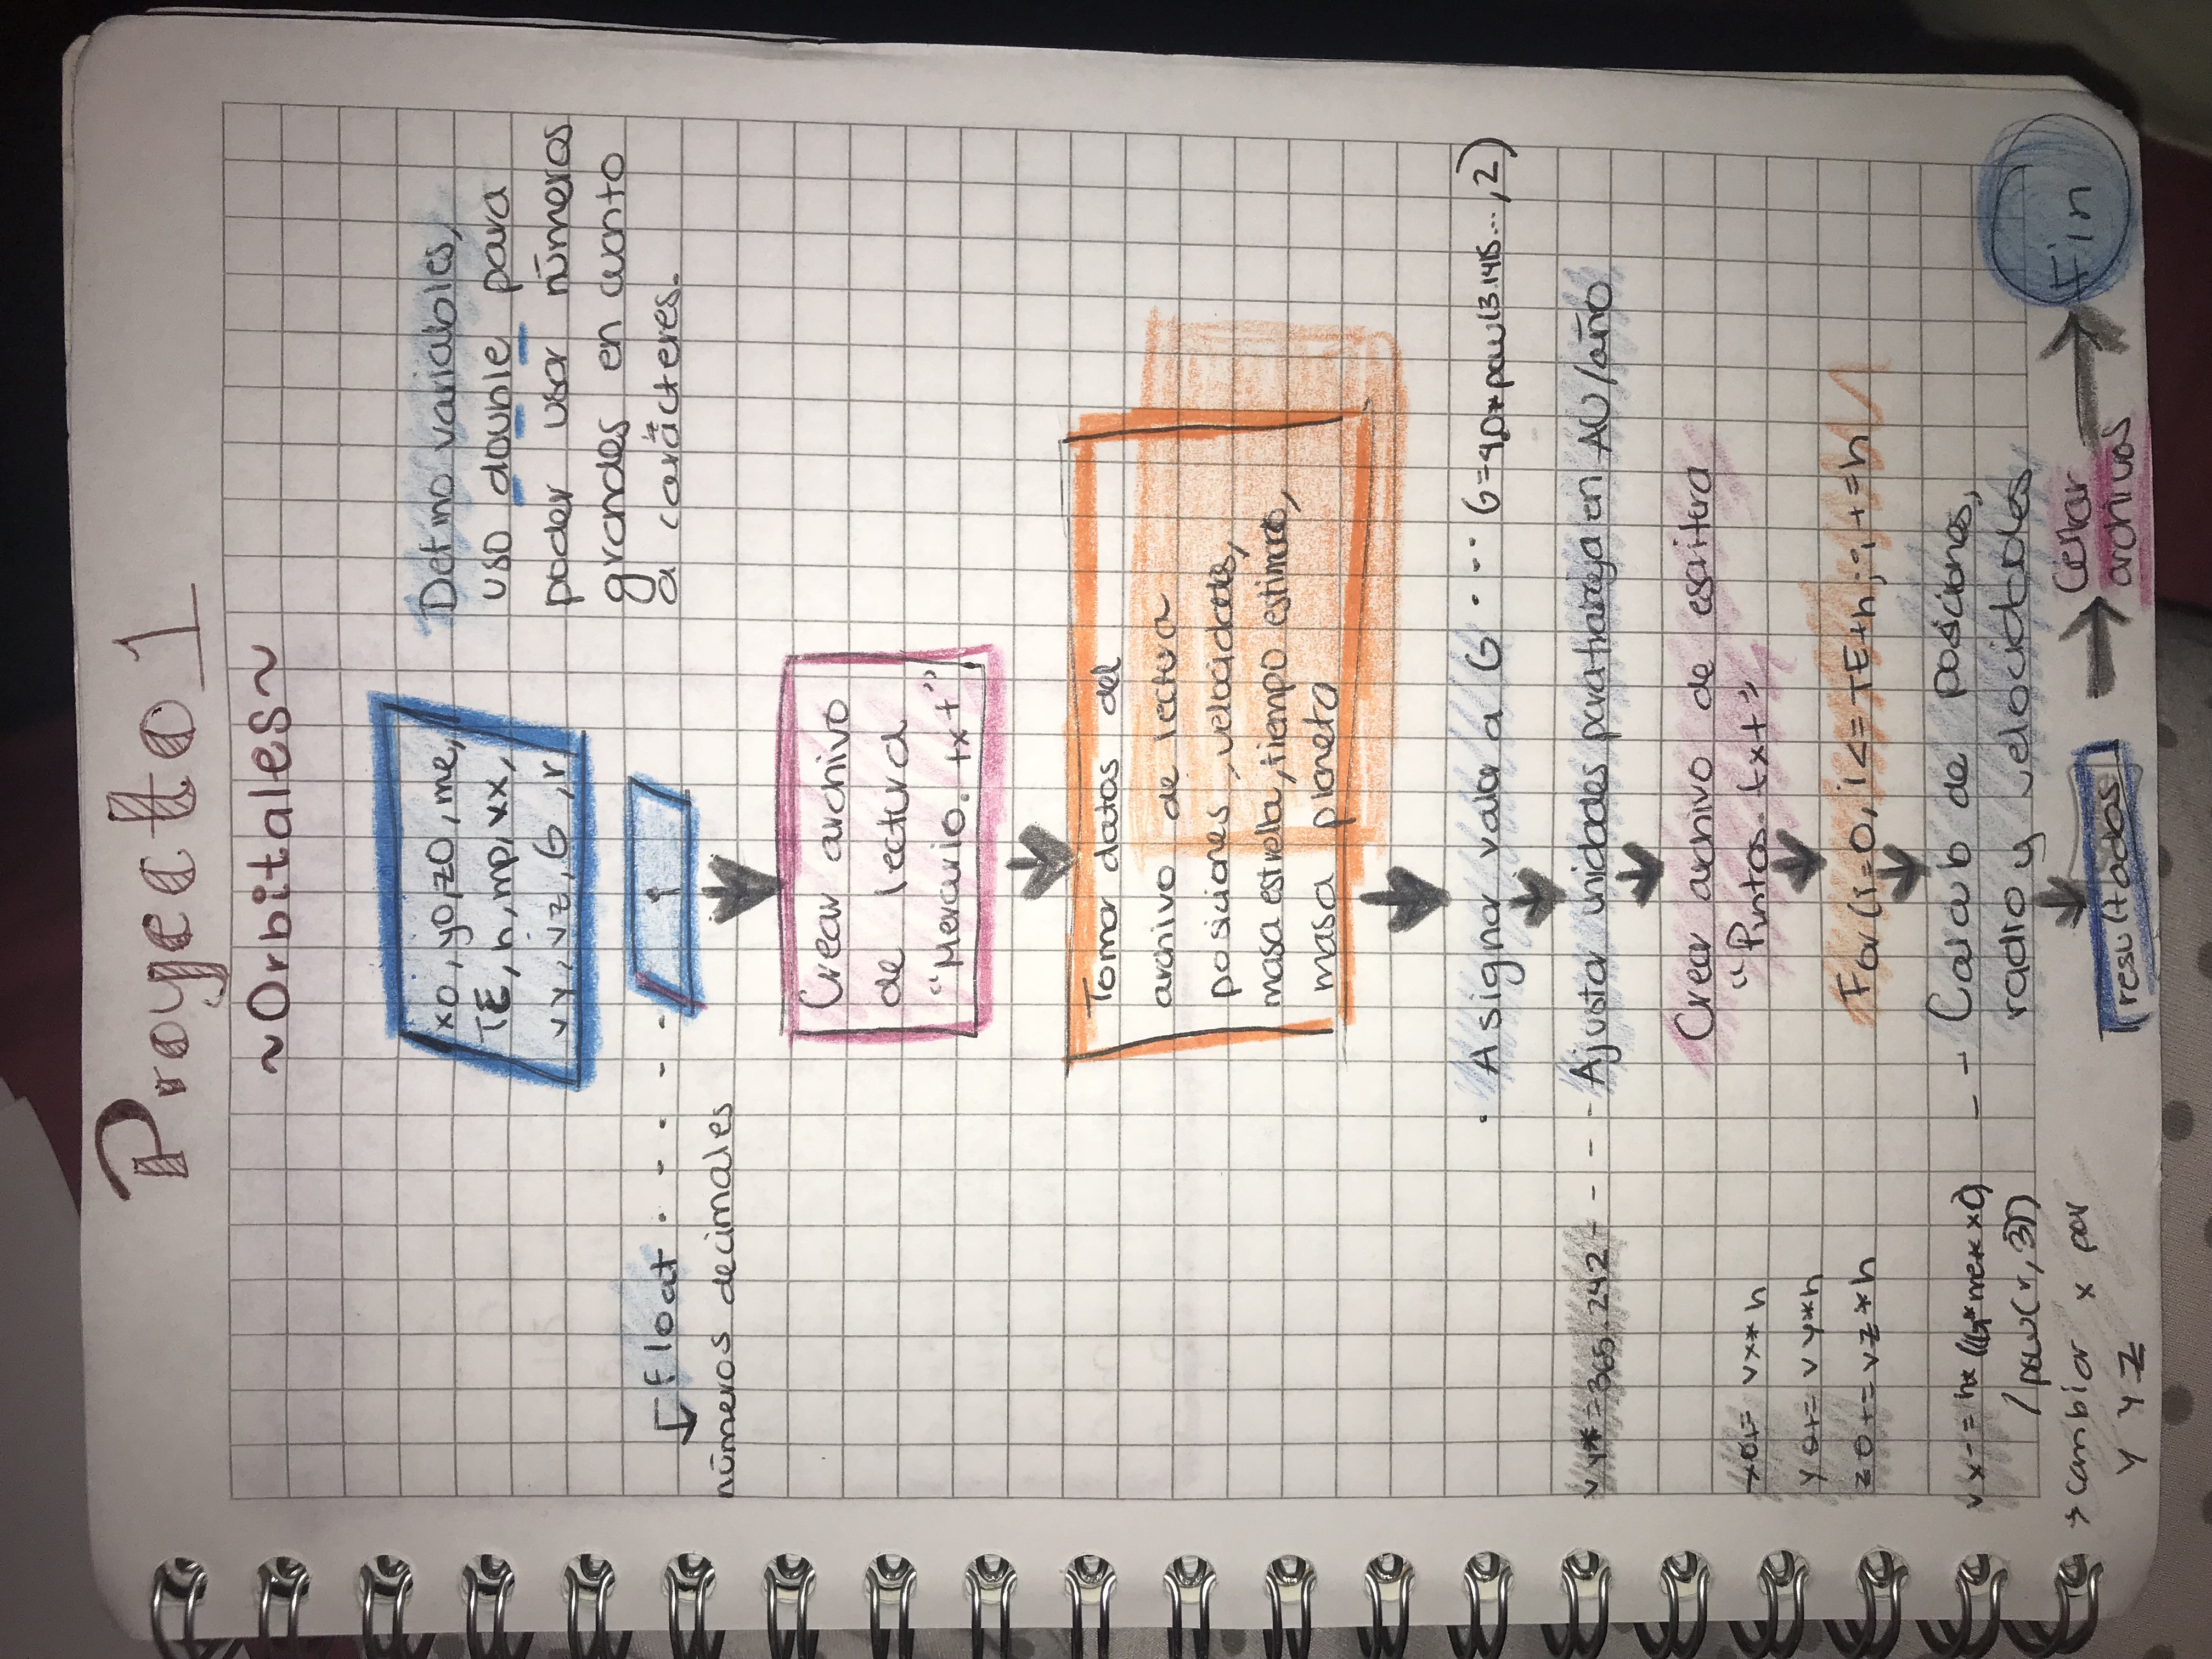 Proyecto 1
~Orbitales~
x0, y0, z0, me,
TE, h, mp, vx,
vy, vz, G, r
Defino variables,
uso double para
poder usar números
grandes en cuanto
a carácteres.
float
i
números decimales
Crear archivo
de lectura
"Mercurio.txt"
Tomar datos del
archivo de lectura
posiciones, velocidades,
masa estrella, tiempo estimado,
masa planeta
Asignar valor a G
G=4.0*pow(3.1415...,2)
vy*=365.242
Ajustar unidades para trabajar en AU/año
Crear archivo de escritura
"Puntos.txt"
x0+= vx*h
y0+= vy*h
z0+= vz*h
For (i=0, i<=TE+h; i+=h
Calculo de posiciones,
radio y velocidades
vx-= h*((G*me*x0)
/pow(r,3))
→ cambiar x por
y y z
resultados
Cerrar
archivos
Fin